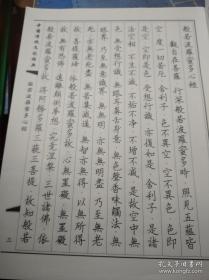 般若波羅蜜多心經
觀自在菩薩 行深般若波羅蜜多時 照見五蘊皆
空 度一切苦厄 舍利子 色不異空 空不異色 色即
是空 空即是色 受想行識 亦復如是 舍利子 是諸
法空相 不生不滅 不垢不淨 不增不減 是故空中無
色 無受想行識 無眼耳鼻舌身意 無色聲香味觸法 無
眼界 乃至無意識界 無無明 亦無無明盡 乃至無老
死 亦無老死盡 無苦集滅道 無智亦無得 以無所得
故 菩提薩埵 依般若波羅蜜多故 心無罣礙 無罣礙
故 無有恐怖 遠離顛倒夢想 究竟涅槃 三世諸佛 依
般若波羅蜜多故 得阿耨多羅三藐三菩提 故知般若
般若波羅蜜多心經
孔夫子旧书网